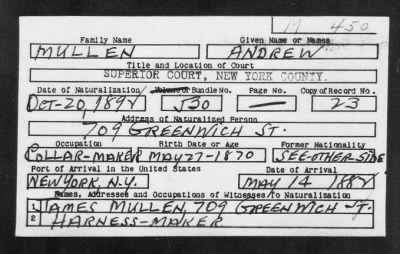 M 450
Family Name Given Name or Names
MULLEN ANDREW
Title and Location of Court
SUPERIOR COURT, NEW YORK COUNTY.
Date of Naturalization Volume or Bundle No. Page No. Copy of Record No.
OCT-20,1892 530 — 23
Address of Naturalized Person
709 GREENWICH ST.
Occupation Birth Date or Age Former Nationality
COLLAR-MAKER MAY 27-1870 SEE-OTHER SIDE
Port of Arrival in the United States Date of Arrival
NEW YORK, N.Y. MAY 14 1882
Names, Addresses and Occupations of Witnesses to Naturalization
1 JAMES MULLEN, 709 GREENWICH ST.
2 HARNESS-MAKER